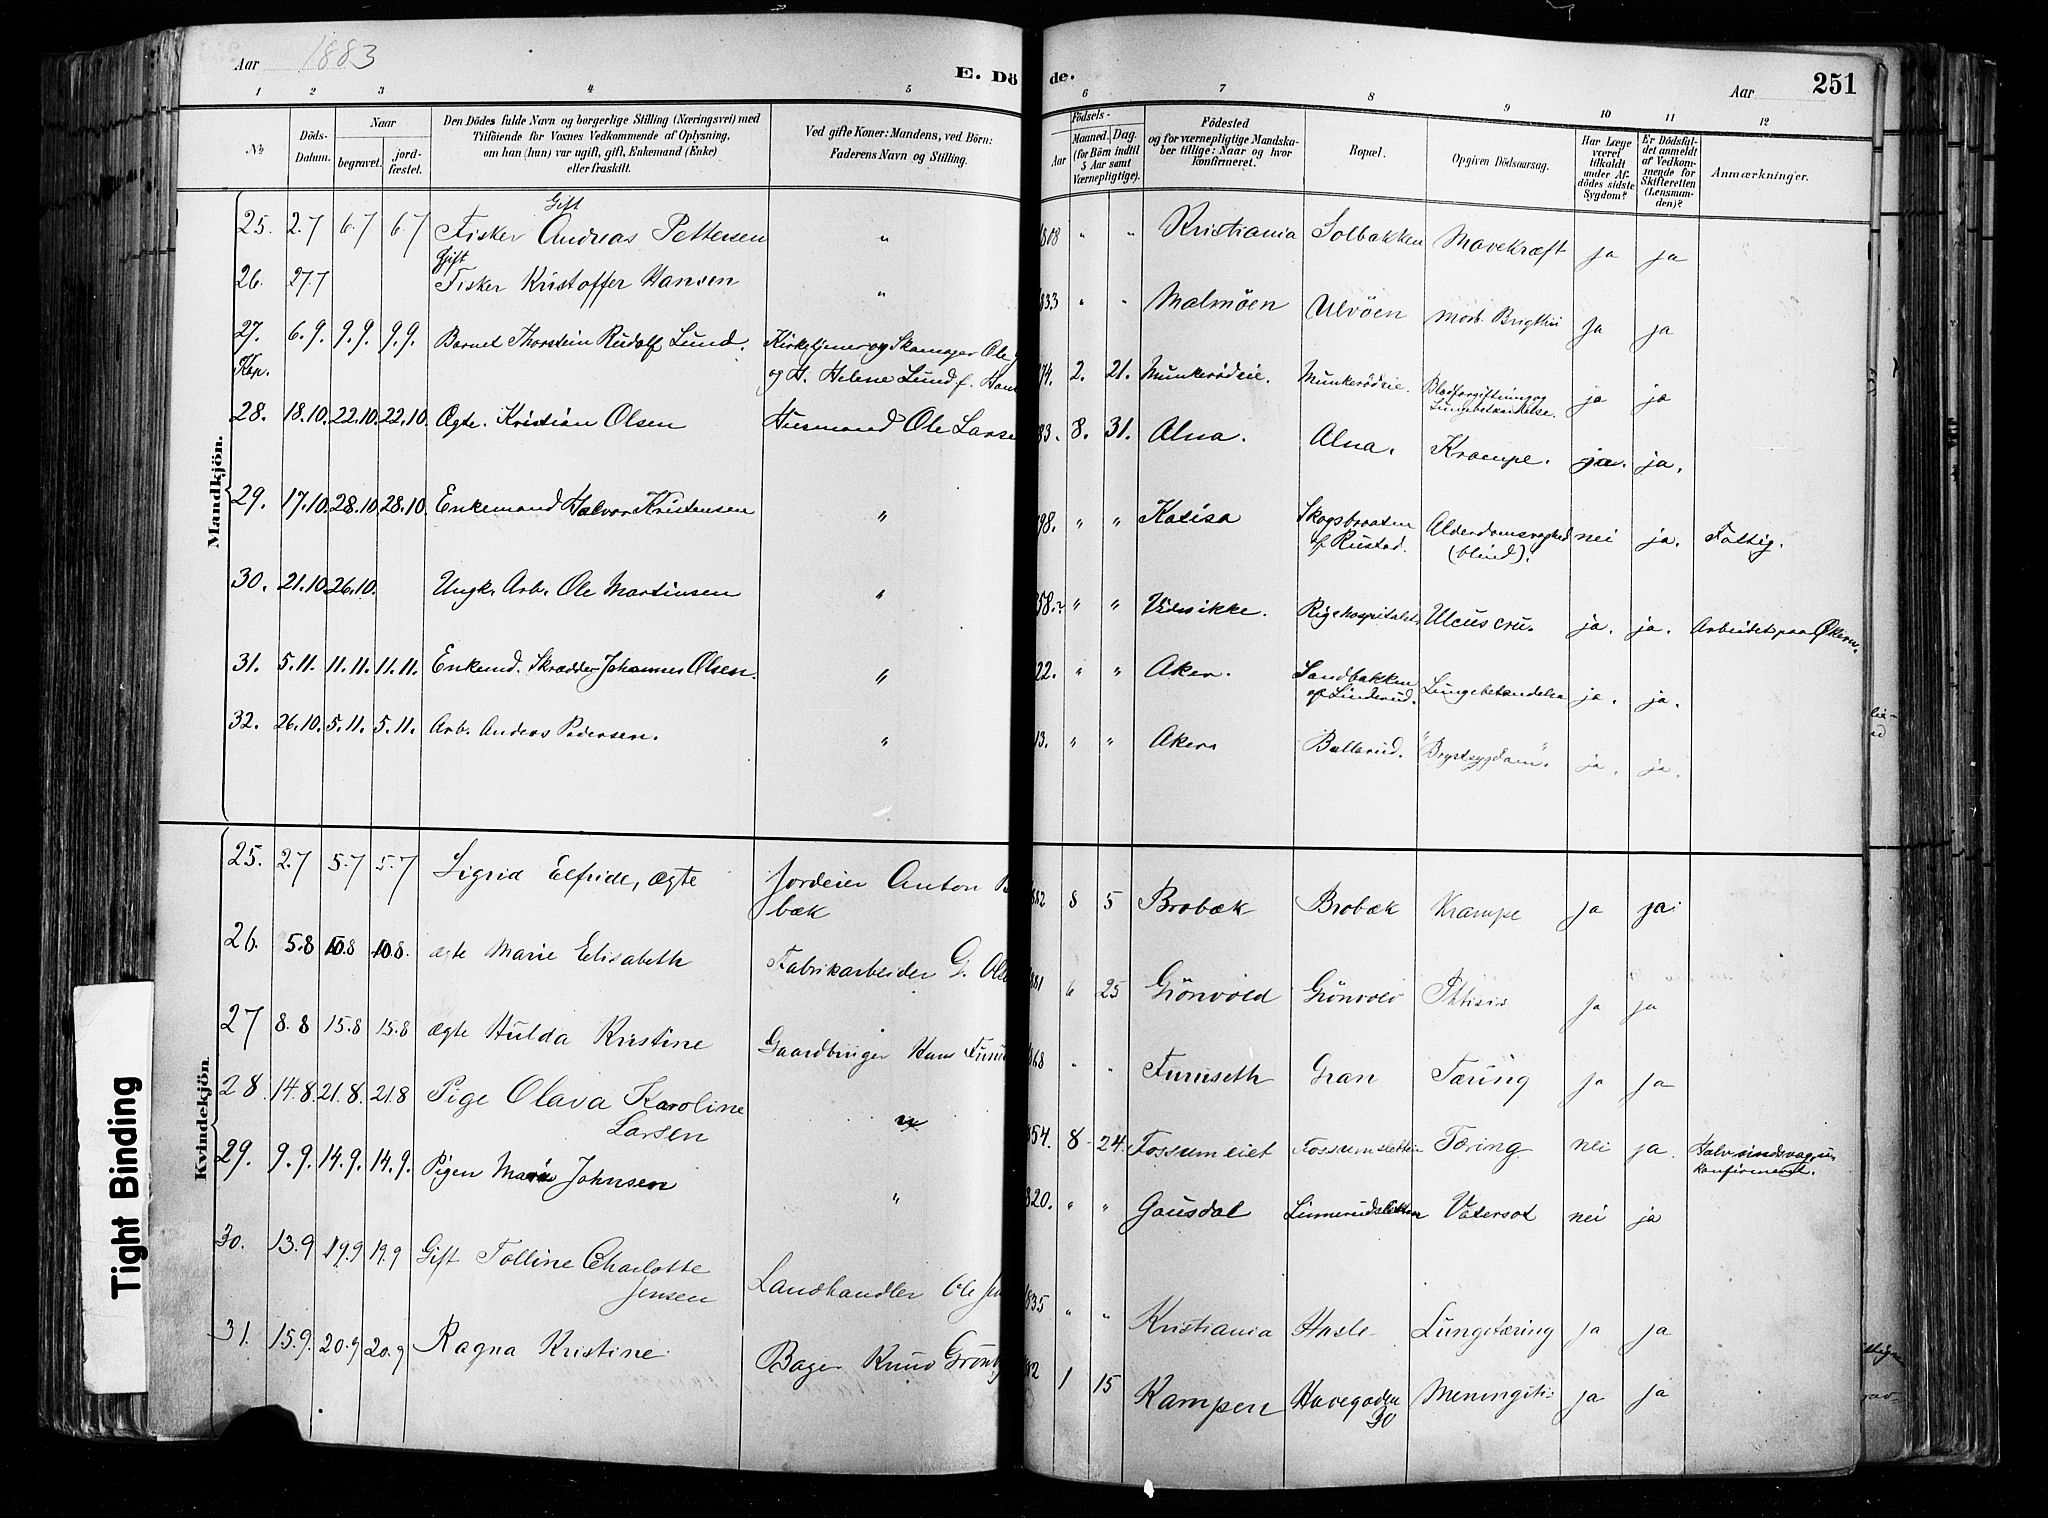 Aar 1883
E. Dö de.
Aar 251
1 2 3 4 5 6 7 8 9 10 11 12
No.
Döds-Datum.
Naar
begravet.
jord-fæstet.
Den Dödes fulde Navn og borgerlige Stilling (Næringsvei) med
Tilföiende for Voxnes Vedkommende af Oplysning,
om han (hun) var ugift, gift, Enkemand (Enke)
eller fraskilt.
Ved gifte Koner: Mandens, ved Börn:
Faderens Navn og Stilling.
Födsels-
Aar
Maaned. Dag.
(for Börn indtil
5 Aar samt
Værnepligtige).
Födested
og for værnepligtige Mandska-
ber tillige: Naar og hvor
konfirmeret.
Bopæl.
Opgiven Dödsaarsag.
Har Læge
været
tilkaldt
under Af-
dödes sidste
Sygdom?
Er Dödsfal-
det anmeldt
af Vedkom-
mende for
Skifteretten
(Lensman-
den)?
Anmærkninger.
Mandkjön.
Gift
25. 2.7 6.7 6.7 Fisker Andreas Pettersen " 808 " " Kristiania Solbakken Mavekræft ja ja
Gift
26. 27.7 Fisker Kristoffer Hansen " 833 " " Malmöen Ulvöen Morb. Brigthii ja ja
27. 6.9. 9.9. 9.9. Barnet Thorstein Rudolf Lund. Kirketjener og Skomager Ole
Kap. og H. Helene Lund f. Han 74. 2. 21. Munkerödeie. Munkerödeie. Blodforgiftning og
Lungebetændelse. ja ja
28. 18.10. 22.10. 22.10. Ægte. Kristian Olsen Husmand Ole Larse 83. 8. 31. Alna. Alna. Krampe. ja. ja.
29. 17.10. 28.10. 28.10. Enkemand Halvor Kristensen " 98. " " Skogsbraaten
af Rustad. Alderdomssvaghed
(blind). nei ja. Fattig.
30. 21.10. 26.10. Ungk. Arb. Ole Martinsen " 58.? " " Rigshospitalet Ulcus cru. ja. ja. Arbeidet paa Økern.
31. 5.11. 11.11. 11.11. Enkemd. Skrædder Johannes Olsen. " 22. " " Aker. Sandbakken
af Linderud. Lungebetændelse ja. ja.
32. 26.10. 5.11. 5.11. Arb. Anders Pedersen. " 13. " " Aker Ballerud. "Brystsygdom". ja. ja.
Kvindekjön.
25. 2.7 5.7 5.7 Sigrid Elfride, ægte Jordeier Anton B
bæk 882 8 5 Brobæk Brobæk Krampe ja ja.
26. 5.8 10.8 10.8. ægte Marie Elisabeth Fabrikarbeider G. Ols 881 6 25 Grönvold Grönvold Phtisis ja ja
27 8.8 15.8 15.8 ægte Hulda Kristine Gaardbruger Hans Furu 868 " " Furuseth Gran Tæring ja ja
28. 14.8. 21.8. 21.8 Pige Olava Karoline
Larsen " 854. 8 24. Fossumeiet Fossumsletten Tæring nei ja. Halv sindssvag, u
konfirmeret.
29. 9.9. 14.9. 14.9. Pigen Marie Johnsen " 820. " " Gausdal Linnerudsletten Vatersot nei ja
30. 13.9 19.9 19.9 Gift Talline Charlotte
Jensen Landhandler Ole Jen 835 " " Kristiania Hasle Lungetæring ja ja
31. 15.9. 20.9 20.9 Ragna Kristine Bager Knud Grönb 882 1 15 Kampen Havegaden
30 Meningitis ja ja
Tight Binding